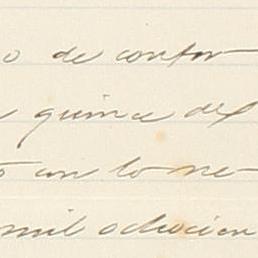 o de confor
quince del
ó con lo ne-
mil ochocien